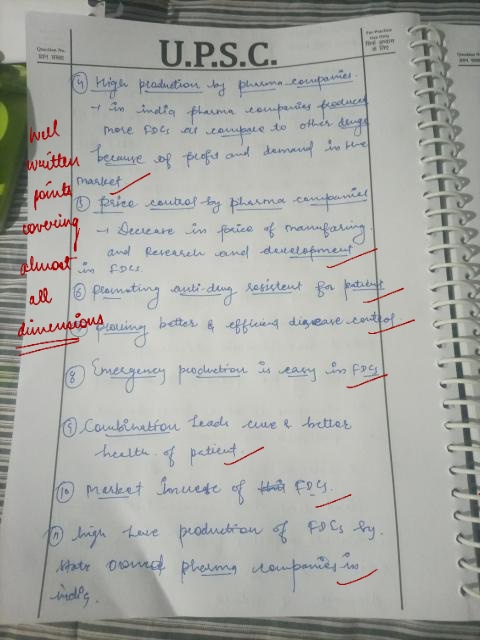 Question No.
प्रश्न संख्या
U.P.S.C.
For Practice
Use Only
④ High production by pharma companies.
→ in india pharma companies produced
more FDCs as compare to other drugs
because of profit and demand in the
market
⑤ Price control by pharma companies
→ Decrease in price of manufaring
and Research and development
in FDCs.
⑥ Promoting anti-drug resistent for patient
proving better & efficient disease control.
⑧ Emergency production is easy in FDCs
⑨ Combination leads cure & better
health of patient.
⑩ Market Increase of FDCs.
⑪ high production of FDCs by
state owned pharma companies in
india.
Well
written
points
covering
almost
all
dimensions